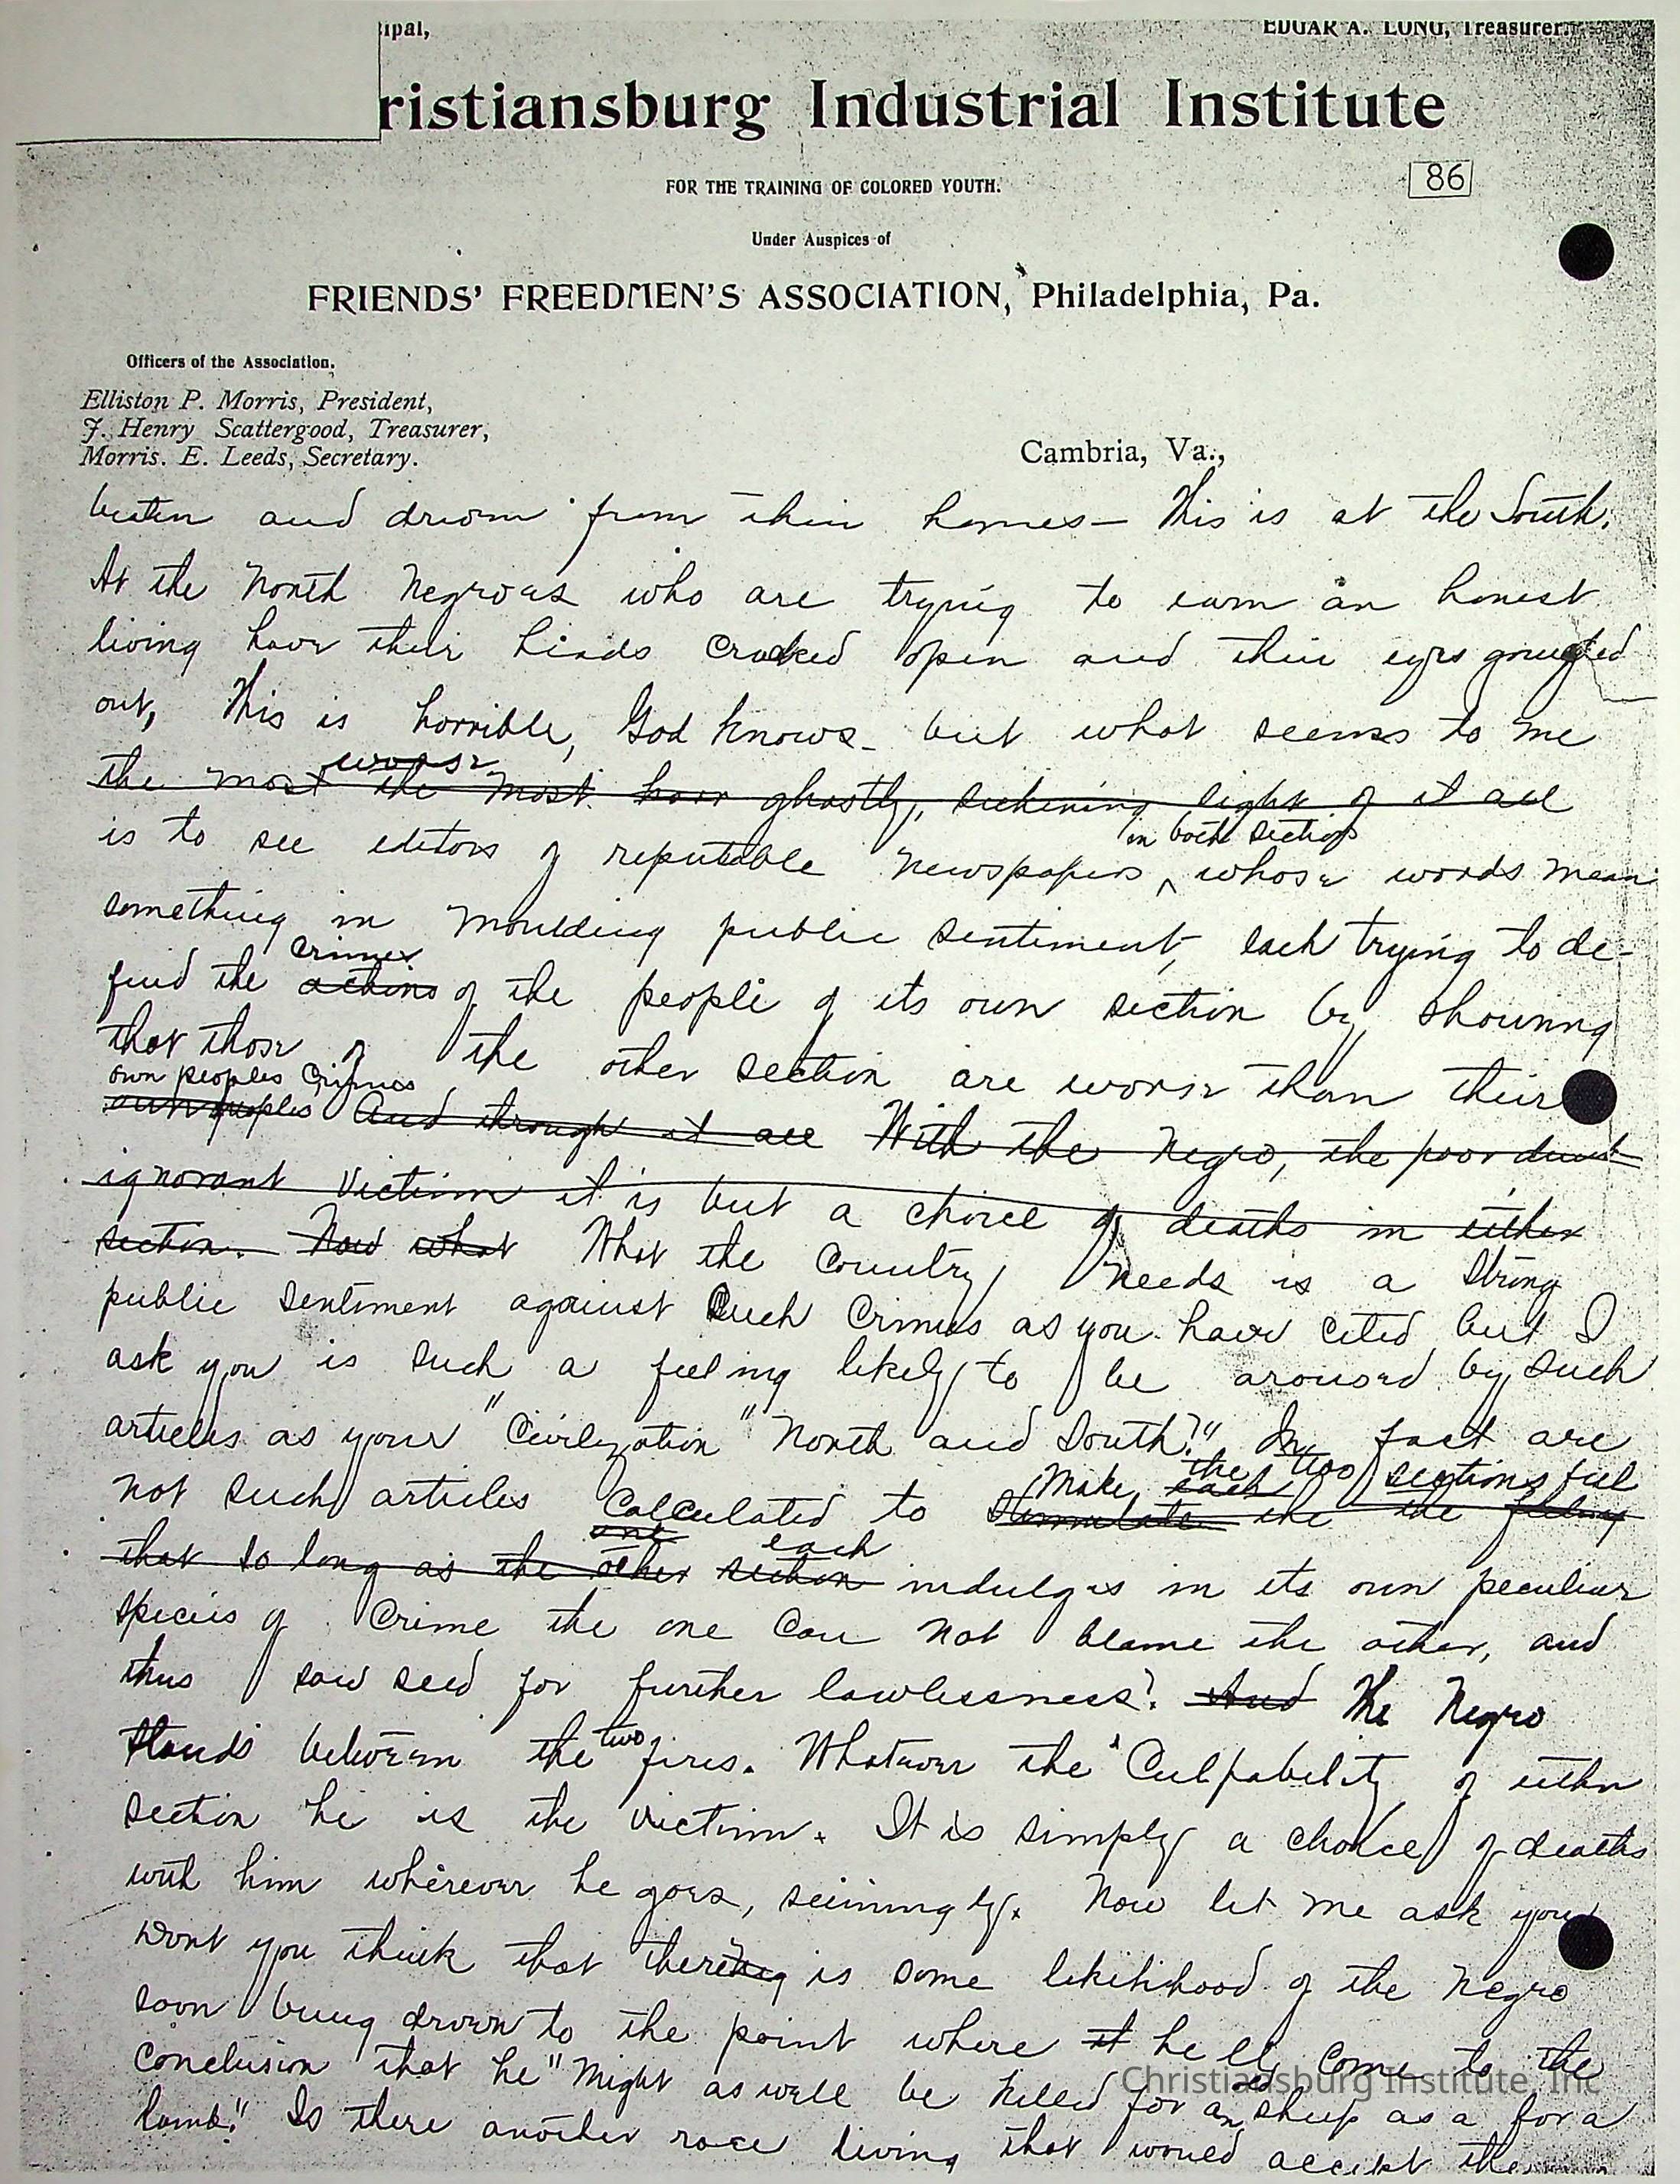 ipal,
EDGAR A. LONG, Treasurer.
ristiansburg Industrial Institute
FOR THE TRAINING OF COLORED YOUTH.
86
Under Auspices of
FRIENDS' FREEDMEN'S ASSOCIATION, Philadelphia, Pa.
Officers of the Association.
Elliston P. Morris, President,
J. Henry Scattergood, Treasurer,
Morris. E. Leeds, Secretary.
Cambria, Va.,
beaten and driven from their homes— This is at the South.
At the North Negroes who are trying to earn an honest
living have their heads cracked open and their eyes gouged
out, This is horrible, God knows- but what seems to me
worse
the most the most ghastly, sickening sight of it all
in both sections
is to see editors of reputable newspapers ^ whose words mean
something in moulding public sentiment, each trying to de-
crimes
fend the actions of the people of its own section by showing
that those of the other section are worse than their
own peoples crimes
own peoples And through it all With the Negro, the poor
ignorant victim it is but a choice of deaths in either
section. Now what What the Country needs is a strong
public sentiment against such crimes as you have cited but I
ask you is such a feeling likely to be aroused by such
articles as your "Civilization" North and South?" In fact are
make each the two sections feel
not such articles calculated to stimulate the the feeling
one each
that so long as the other section indulges in its own peculiar
species of crime the one can not blame the other, and
thus sow seed for further lawlessness? And The Negro
two
stands between the fires. Whatever the culpability of either
section he is the victim. It is simply a choice of deaths
with him wherever he goes, seemingly. Now let me ask you
wont you think that there is some likelihood of the Negro
soon being drown to the point where it he come to the
conclusion that he "might as well be killed for a sheep as a for a
lamb." Is there another race living that would accept the
Christiansburg Institute, Inc